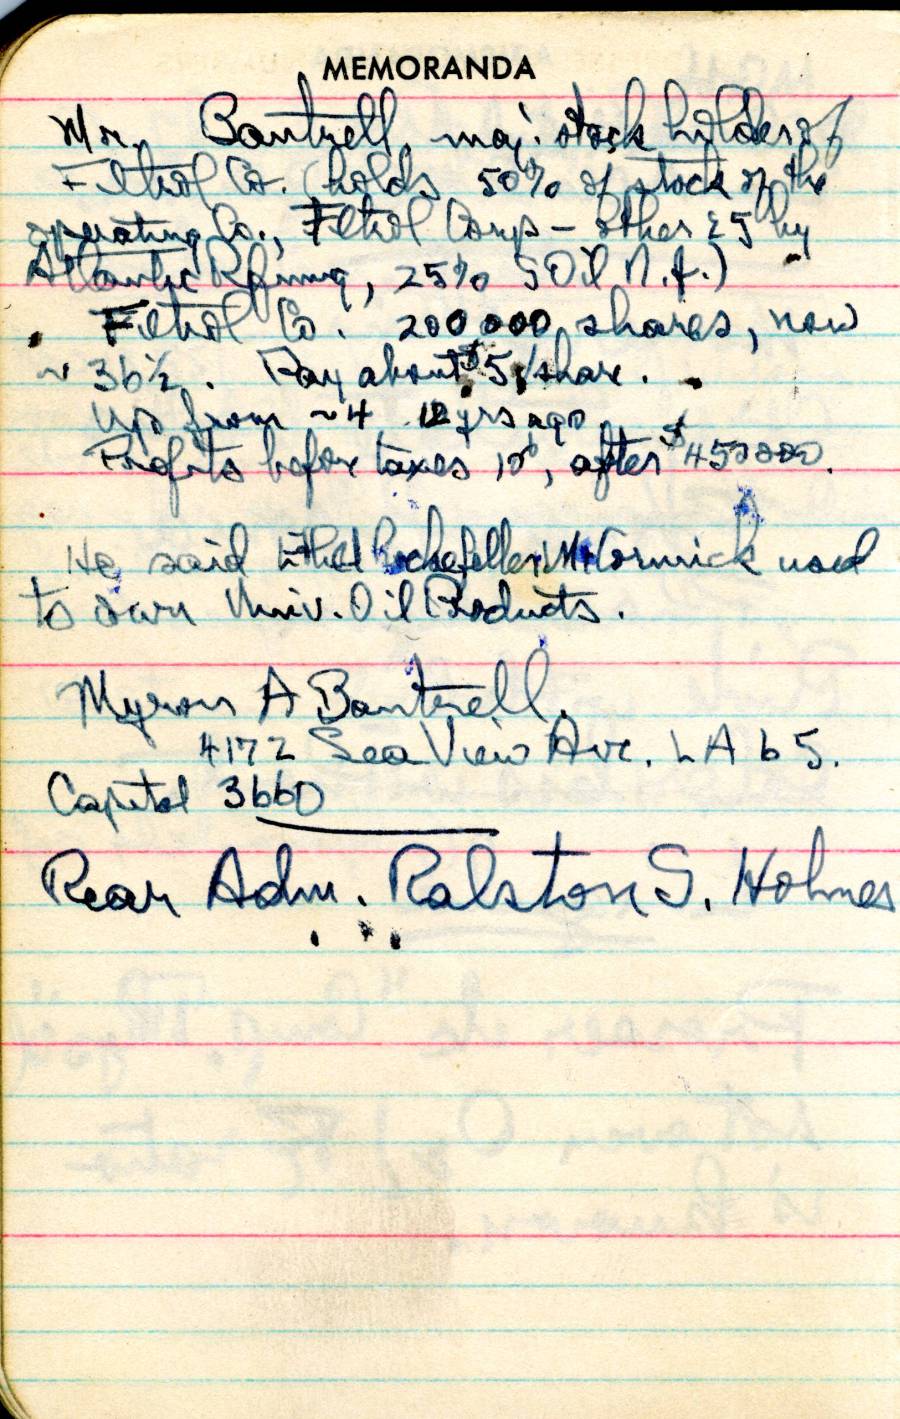 MEMORANDA
Mr. Bantrell, maj. stock holder of
Filtrol Co. (holds 50% of stock of the
operating Co., Filtrol Corp – other 25 by
Atlantic Refining, 25% SOil N.J.)
Filtrol Co. 200 000 shares, now
~ 36½. Pay about $5/share.
Up from ~4 12 yrs ago.
Profits before taxes 10⁶, after $450000.
He said Ethel Rockefeller McCormick used
to own Univ. Oil Products.
Myron A Bantrell.
4172 Sea View Ave. LA 65.
Capitol 3660
Rear Adm. Ralston S. Holmes